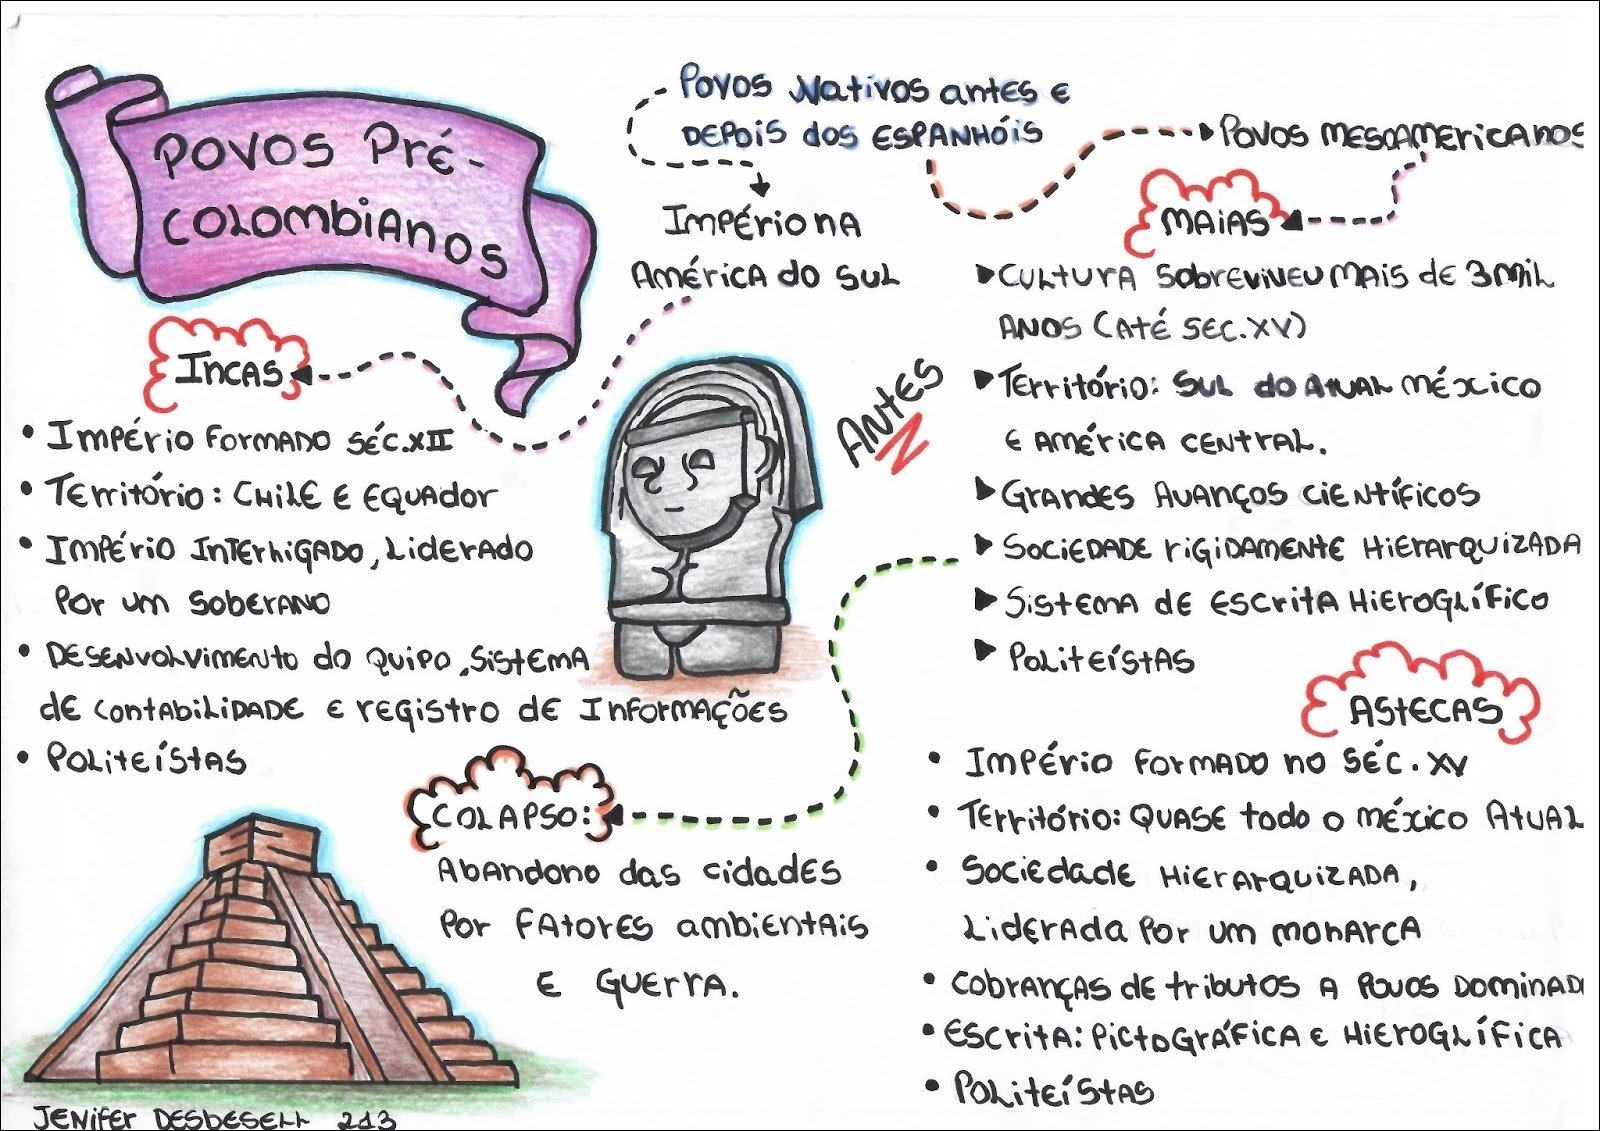 Povos Pré-
Colombianos
Povos Nativos antes e
depois dos espanhóis
Império na
América do Sul
Povos mesoamericanos
Maias
Cultura sobreviveu mais de 3 mil
anos (até sec. XV)
Território: Sul do atual México
e América Central.
Grandes avanços científicos
Sociedade rigidamente hierarquizada
Sistema de escrita hieroglífico
Politeístas
Antes
Incas
• Império formado séc. XII
• Território: Chile e Equador
• Império interhigado, liderado
por um soberano
• Desenvolvimento do quipo, sistema
de contabilidade e registro de informações
• Politeístas
Colapso:
Abandono das cidades
por fatores ambientais
e guerra.
Astecas
• Império formado no séc. XV
• Território: quase todo o México atual
• Sociedade hierarquizada,
liderada por um monarca
• Cobranças de tributos a povos dominad
• Escrita: pictográfica e hieroglífica
• Politeístas
Jenifer Desbesell 213